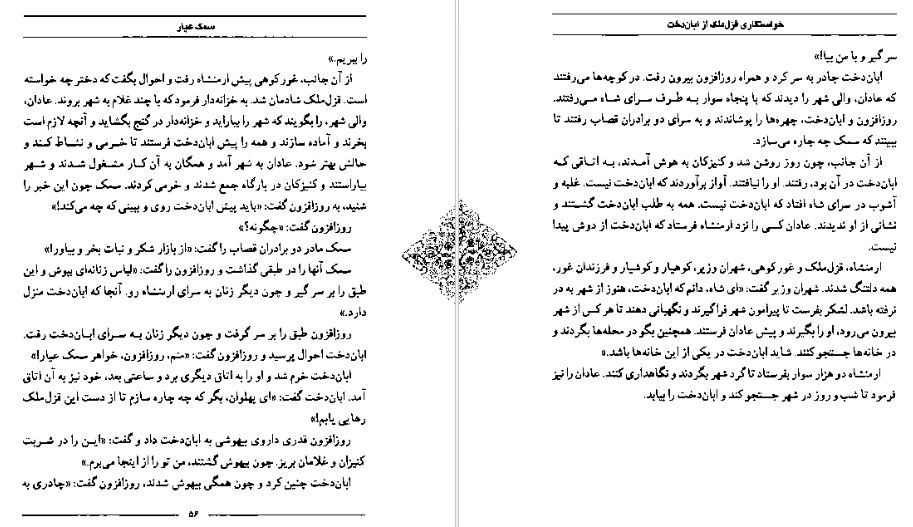 سمک عیار
را ببریم.»
از آن جانب، غورکوهی پیش ارمنشاه رفت و احوال بگفت که دختر چه خواسته
است. قزل‌ملک شادمان شد. به خزانه‌دار فرمود که با چند غلام به شهر بروند. عادان،
والی شهر، را بگویند که شهر را بیاراید و خزانه‌دار در گنج بگشاید و آنچه لازم است
بخرند و آماده سازند و همه را پیش ابان‌دخت فرستند تا خرمی و نشاط کند و
حالش بهتر شود. عادان به شهر آمد و همگان به آن کار مشغول شدند و شهر
بیاراستند و کنیزکان در بارگاه جمع شدند و خرمی کردند. سمک چون این خبر را
شنید، به روزافزون گفت: «باید پیش ابان‌دخت روی و ببینی که چه می‌کند!»
روزافزون گفت: «چگونه؟»
سمک مادر دو برادران قصاب را گفت: «از بازار شکر و نبات بخر و بیاور!»
سمک آنها را در طبقی گذاشت و روزافزون را گفت: «لباس زنانه‌ای بپوش و این
طبق را بر سر گیر و چون دیگر زنان به سرای ارمنشاه رو. آنجا که ابان‌دخت منزل
دارد.»
روزافزون طبق را بر سر گرفت و چون دیگر زنان به سرای ابان‌دخت رفت.
ابان‌دخت احوال پرسید و روزافزون گفت: «منم، روزافزون، خواهر سمک عیار!»
ابان‌دخت خرم شد و او را به اتاق دیگری برد و ساعتی بعد، خود نیز به آن اتاق
آمد. ابان‌دخت گفت: «ای پهلوان، بگر که چه چاره سازم تا از دست این قزل‌ملک
رهایی یابم!»
روزافزون قدری داروی بیهوشی به ابان‌دخت داد و گفت: «این را در شربت
کنیزان و غلامان بریز. چون بیهوش گشتند، من تو را از اینجا می‌برم.»
ابان‌دخت چنین کرد و چون همگی بیهوش شدند، روزافزون گفت: «چادری به
۵۶
خواستگاری قزل‌ملک از ابان‌دخت
سر گیر و با من بیا!»
ابان‌دخت چادر به سر کرد و همراه روزافزون بیرون رفت. در کوچه‌ها می‌رفتند
که عادان، والی شهر را دیدند که با پنجاه سوار به طرف سرای شاه می‌رفتند.
روزافزون و ابان‌دخت، چهره‌ها را پوشاندند و به سرای دو برادران قصاب رفتند تا
ببینند که سمک چه چاره می‌سازد.
از آن جانب، چون روز روشن شد و کنیزکان به هوش آمدند، به اتاقی که
ابان‌دخت در آن بود، رفتند. او را نیافتند. آواز برآوردند که ابان‌دخت نیست. غلبه و
آشوب در سرای شاه افتاد که ابان‌دخت نیست. همه به طلب ابان‌دخت گشتند و
نشانی از او ندیدند. عادان کسی را نزد ارمنشاه فرستاد که ابان‌دخت از دوش پیدا
نیست.
ارمنشاه، قزل‌ملک و غورکوهی، شهران وزیر، کوهیار و کوشیار و فرزندان غور،
همه دلتنگ شدند. شهران وزیر گفت: «ای شاه، دانم که ابان‌دخت، هنوز از شهر به در
نرفته باشد. لشکر بفرست تا پیرامون شهر فراگیرند و نگهبانی دهند تا هر کس از شهر
بیرون می‌رود، او را بگیرند و پیش عادان فرستند. همچنین بگو در محله‌ها بگردند و
در خانه‌ها جستجو کنند. شاید ابان‌دخت در یکی از این خانه‌ها باشد.»
ارمنشاه دو هزار سوار بفرستاد تا گرد شهر بگردند و نگاهداری کنند. عادان را نیز
فرمود تا شب و روز در شهر جستجو کند و ابان‌دخت را بیابد.